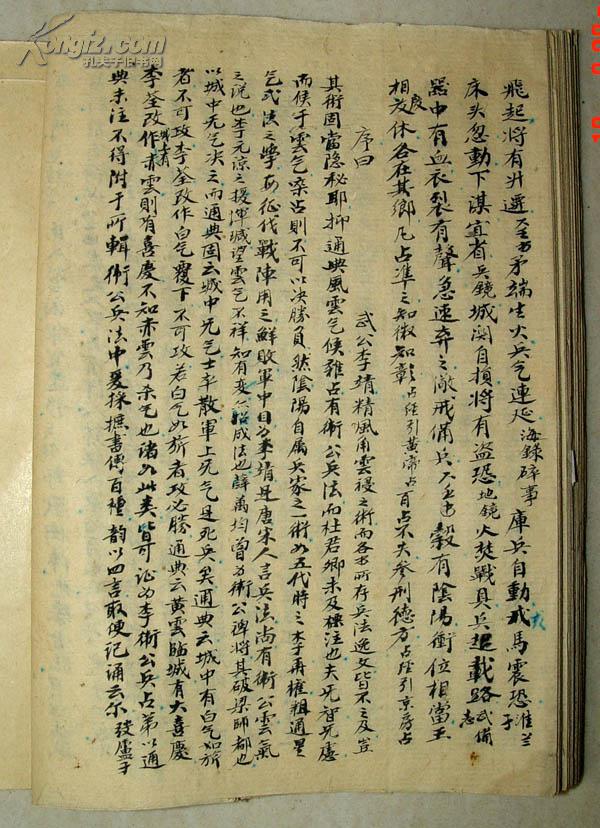 飛起將有升遷 矛端生火兵气連延 海錄碎事 庫兵自動戎馬震恐 淮
床头忽動下謀宜省 兵鏡 城闕自損將有盜恐 地鏡 火焚戰具兵起載路 武備志
器中有血衣裂有聲急速弃之敵戒備兵 轂有陰陽衝位相當王
相廢休各在其鄉凡占準之知微知彰 占經引黃帝占 百占不失參刑德方 占經引京房占
序曰 武公李靖精風角雲祲之術而各書所存兵法逸文皆不之及豈
其術固當隐秘耶抑通典風雲气候雜占有衛公兵法而杜君卿未及標注也夫无智无慮
而候于雲气柰占則不可以决勝負然陰陽自属兵家之一術如五代時之李再權粗通星
气式法之學每征代戰陣用之鮮敗軍中目为李靖是唐宋人言兵法尚有衛公雲氣
之說也李元諒之援渾瑊望雲气不祥知有变 成法也薛萬均曾为衛公禆將其破梁師都也
以城中无气决之而通典固云城中无气士卒散軍上无气是死兵矣通典云城中有白气如旂
者不可攻李荃改作白气覆下不可攻若白气如旂者攻必勝通典云黃雲臨城有大喜慶
李荃改作 赤雲則有喜慶不知赤雲乃杀气也諸如此类皆可证为李衛公兵占弟以通
典未注不得附于所輯衛公兵法中爰採摭書傳百種韵以四言取便记誦云尔 發盧子
Kongfz.com
孔夫子旧书网